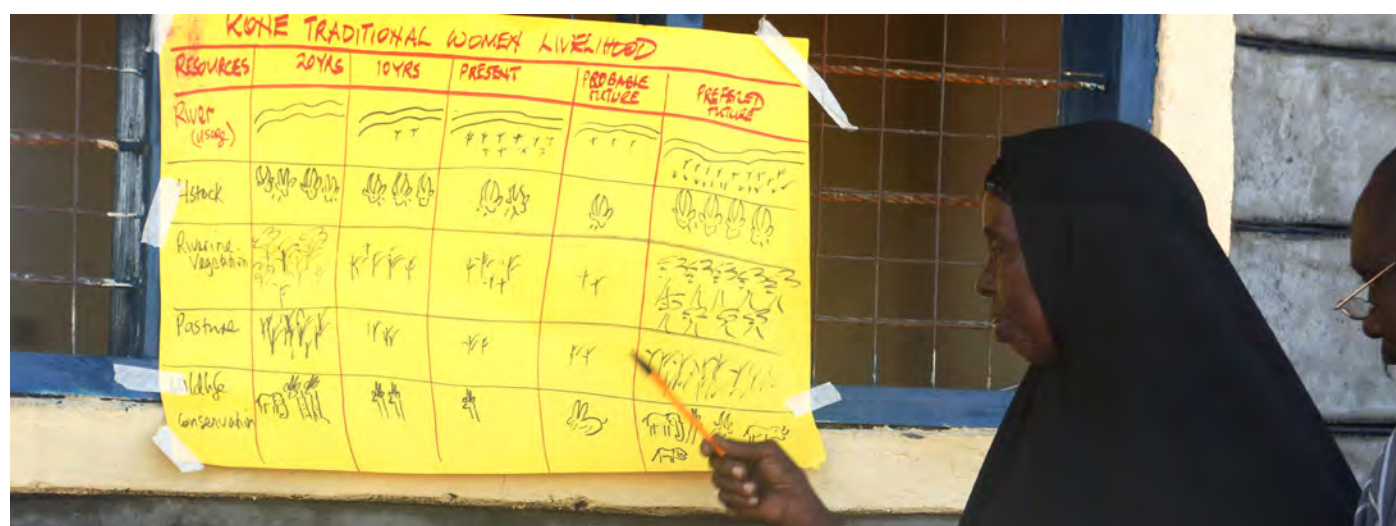 KONE TRADITIONAL WOMEN LIVELIHOOD
RESOURCES 20YRS 10YRS PRESENT PROBABLE FUTURE PREFERED FUTURE
River
(usage)
Hstock
Riverine
Vegetation
Pasture
Wildlife
Conservation